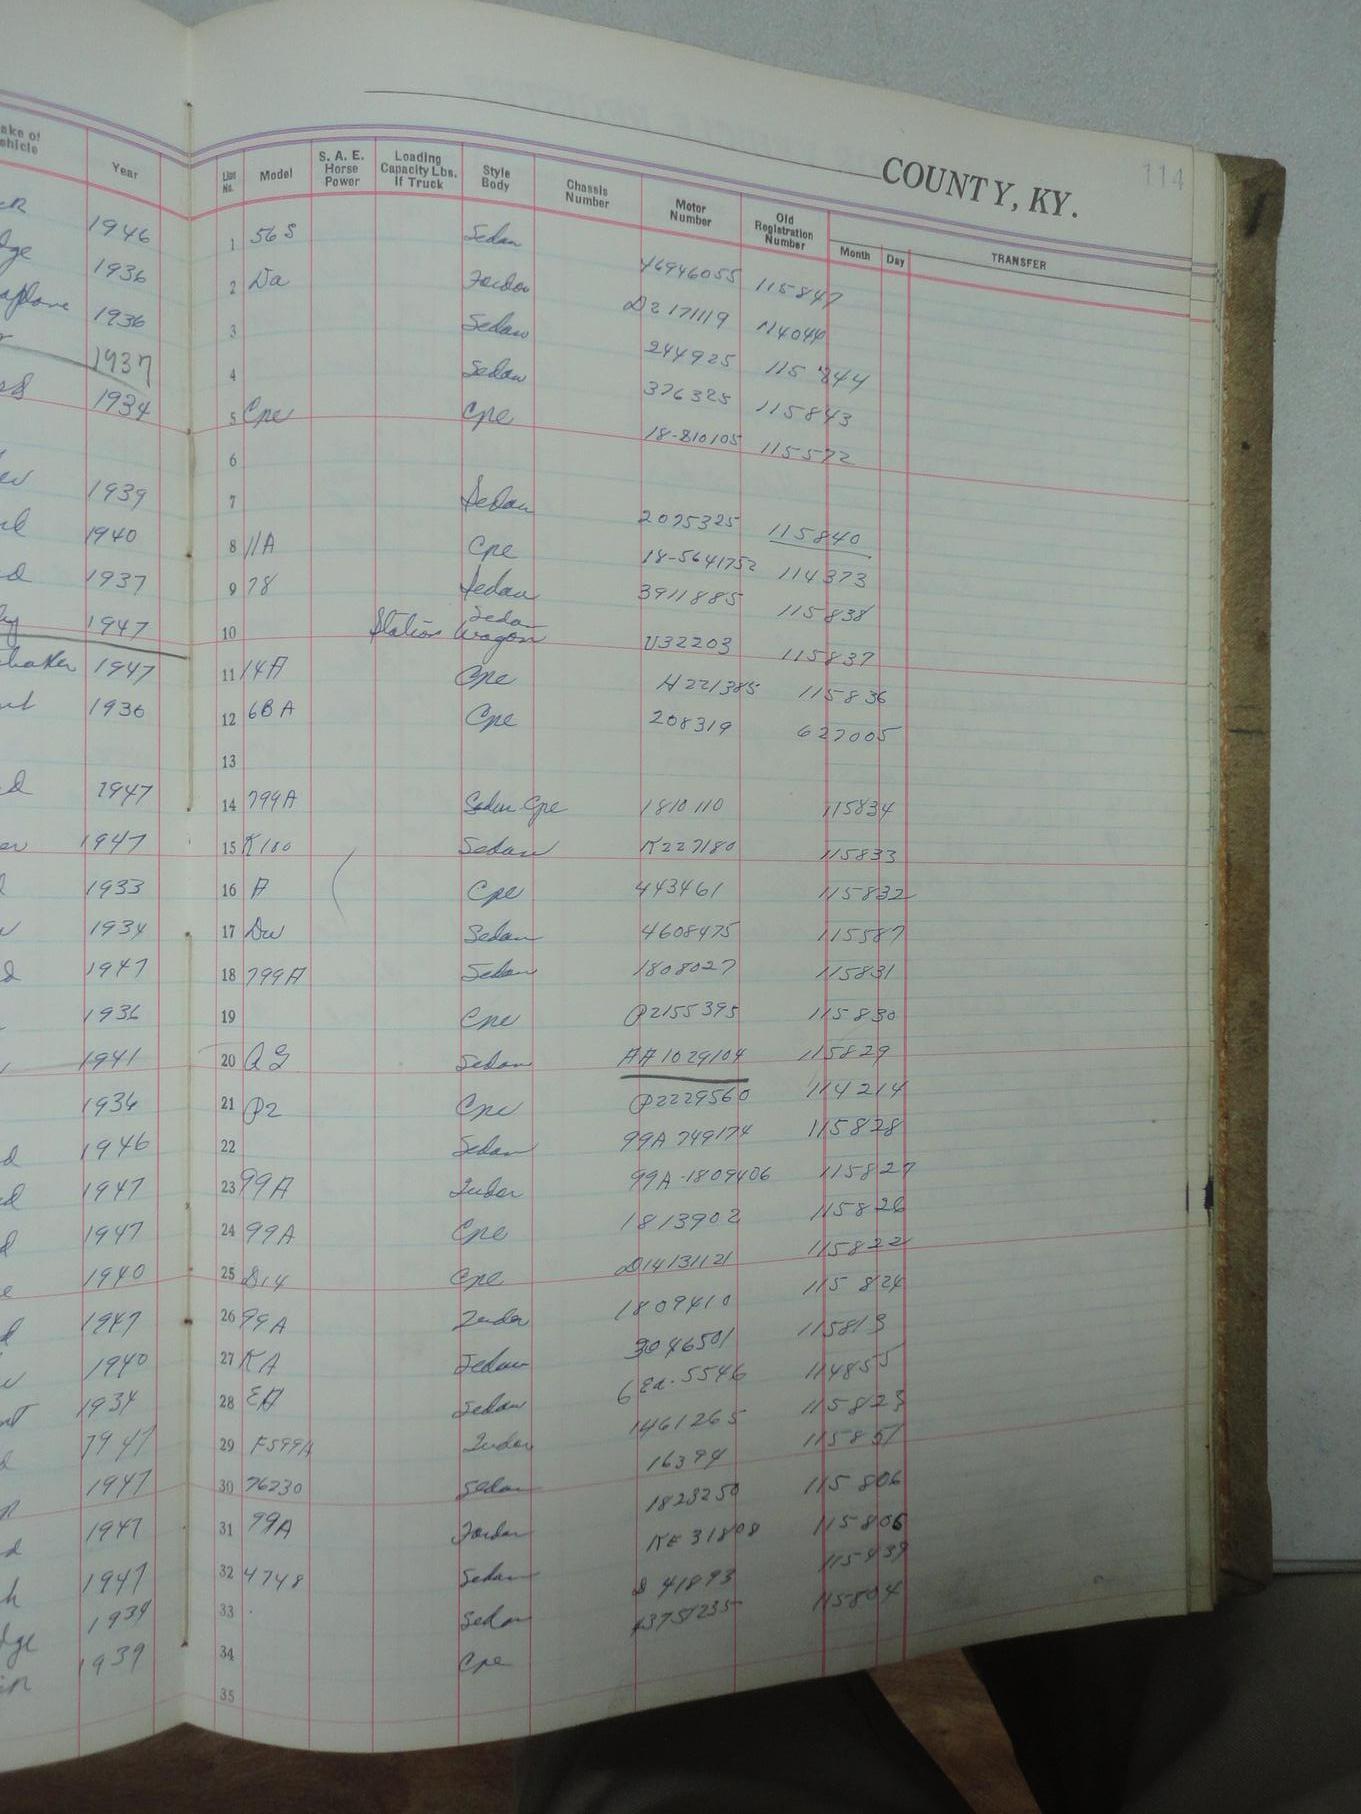 COUNTY, KY. 114
Year Line No. Model S. A. E. Horse Power Loading Capacity Lbs. If Truck Style Body Chassis Number Motor Number Old Registration Number Month Day TRANSFER
1946 1 56 S Sedan 46946055 115847
1936 2 Da Fordor D2 171119 114044
1936 3 Sedan 244925 115844
1937 4 Sedan 376325 115843
1934 5 Cpe Cpe 18-810105 115572
6
1939 7 Sedan 2075325 115840
1940 8 11A Cpe 18-5641752 114373
1937 9 78 Sedan 3911885 115838
1947 10 Station Sedan Wagon V32203 115837
1947 11 14A Cpe H221385 115836
1936 12 6BA Cpe 208319 627005
13
1947 14 799A Sedan Cpe 1810110 115834
1947 15 K100 Sedan K227180 115833
1933 16 A Cpe 443461 115832
1934 17 Du Sedan 4608475 115587
1947 18 799A Sedan 1808027 115831
1936 19 Cpe P2155395 115830
1941 20 AG Sedan AA1029104 115829
1936 21 P2 Cpe P2229560 114214
1946 22 Sedan 99A 749174 115828
1947 23 99A Tudor 99A-1809406 115827
1947 24 99A Cpe 1813902 115826
1940 25 D14 Cpe D14131121 115822
1947 26 99A Tudor 1809410 115824
1940 27 KA Sedan 3046501 115813
1934 28 EA Sedan 6 Ea. 5546 114855
1947 29 F599A Tudor 1461265 115823
1947 30 76230 Sedan 16394 115851
1947 31 99A Fordor 1823250 115806
1947 32 4748 Sedan KE 31808 115806
1934 33 Sedan D 41893 115439
1939 34 Cpe 43757235 115804
35